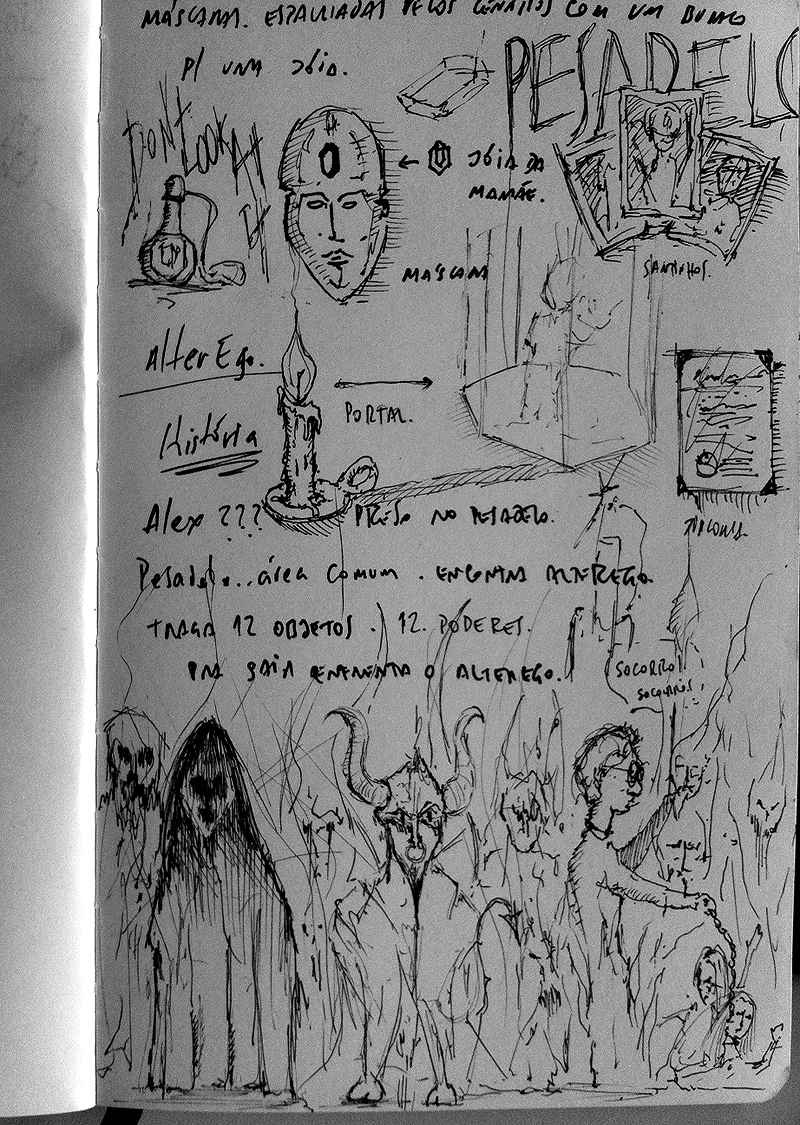 MÁSCARA. ESPALHADAS PELOS CENÁRIOS COM UM BURACO
P/ UMA JÓIA.
PESADELO
DON'T LOOK AT IT
JÓIA DA
MAMÃE.
MÁSCARA
SANTINHOS.
Alter Ego.
PORTAL.
História
Alex ???
PRESO NO PESADELO.
Pesadelo... área comum. ENCONTRA ALTEREGO.
TRAGA 12 OBJETOS. 12 PODERES.
PRA SAIR ENFRENTA O ALTEREGO.
SOCORRO
SOCORRO